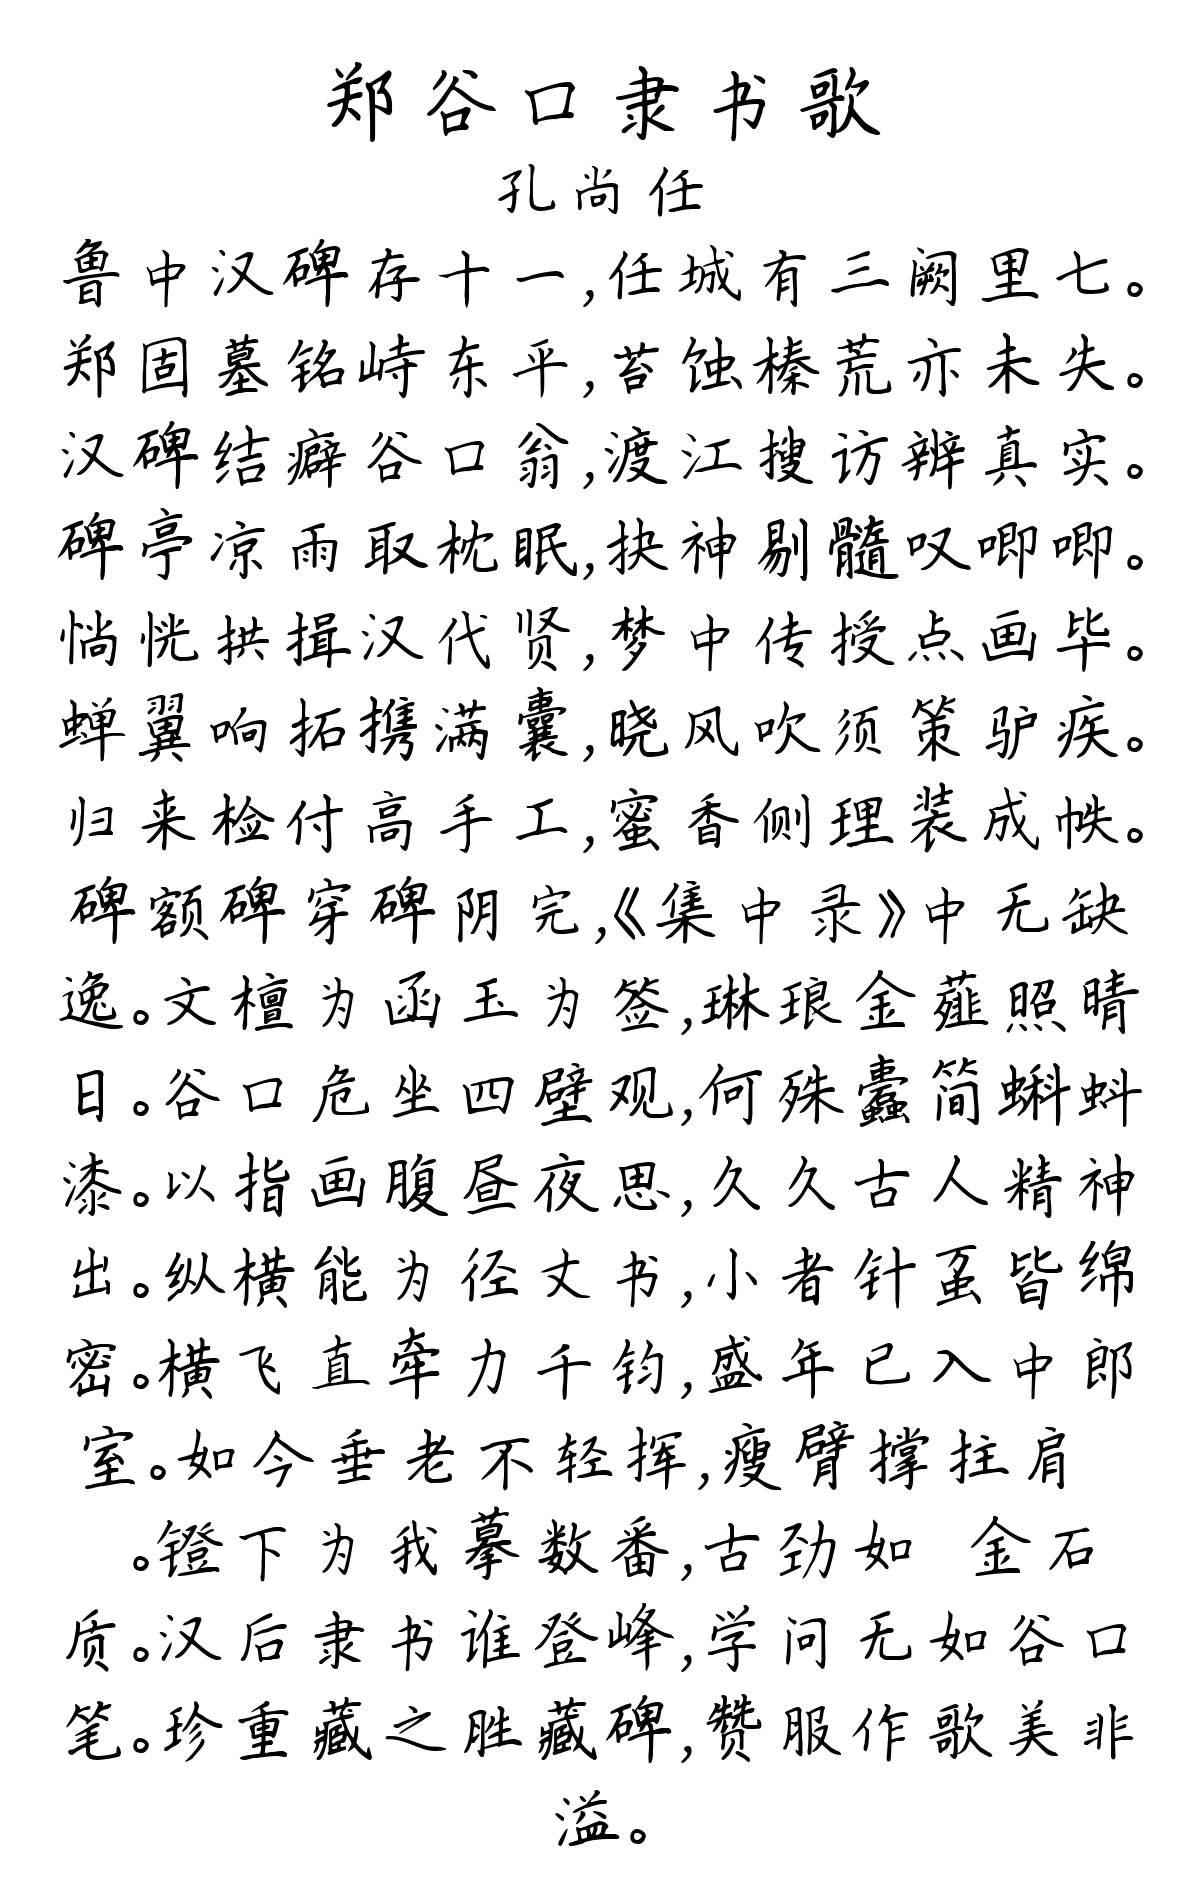 郑谷口隶书歌
孔尚任
鲁中汉碑存十一,任城有三阙里七。
郑固墓铭峙东平,苔蚀榛荒亦未失。
汉碑结癖谷口翁,渡江搜访辨真实。
碑亭凉雨取枕眠,抉神剔髓叹唧唧。
惝恍拱揖汉代贤,梦中传授点画毕。
蝉翼响拓携满囊,晓风吹须策驴疾。
归来检付高手工,蜜香侧理装成帙。
碑额碑穿碑阴完,《集中录》中无缺
逸。文檀为函玉为签,琳琅金薤照晴
日。谷口危坐四壁观,何殊蠹简蝌蚪
漆。以指画腹昼夜思,久久古人精神
出。纵横能为径丈书,小者针虿皆绵
密。横飞直牵力千钧,盛年已入中郎
室。如今垂老不轻挥,瘦臂撑拄肩
。镫下为我摹数番,古劲如 金石
质。汉后隶书谁登峰,学问无如谷口
笔。珍重藏之胜藏碑,赞服作歌美非
溢。